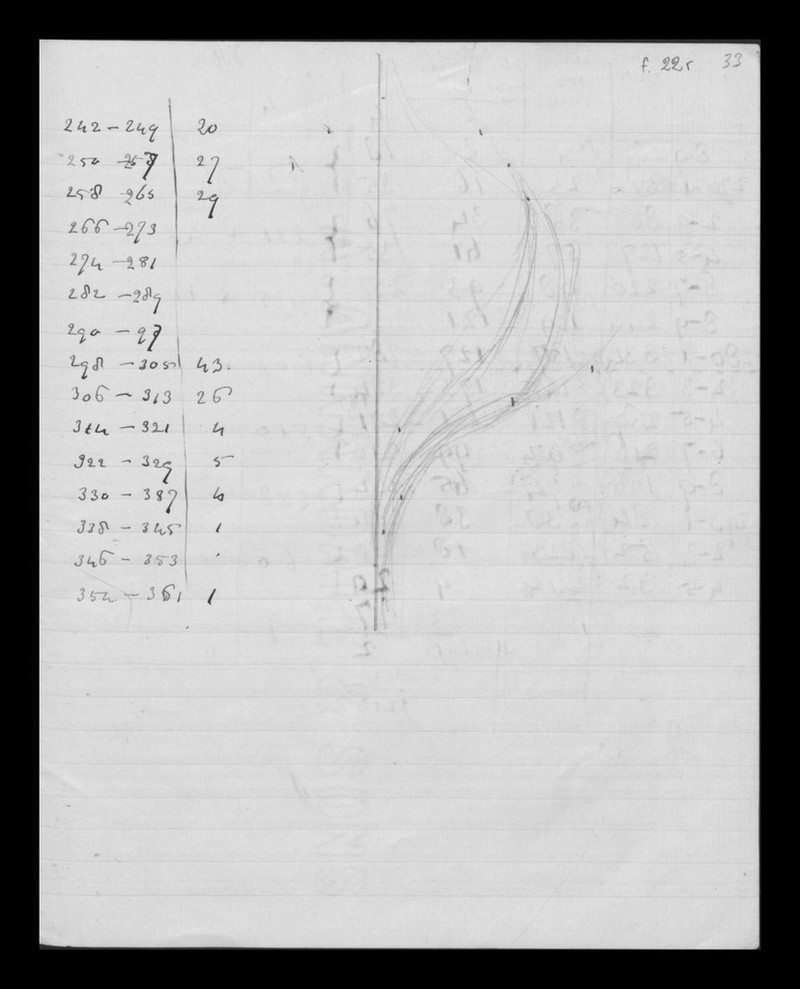 f. 22r 33
242 – 249 20
250 – 257 27
258 – 265 29
266 – 273
274 – 281
282 – 289
290 – 97
298 – 305 43.
306 – 313 26
314 – 321 4
322 – 329 5
330 – 387 4
338 – 345 1
346 – 353 ·
354 – 361 1